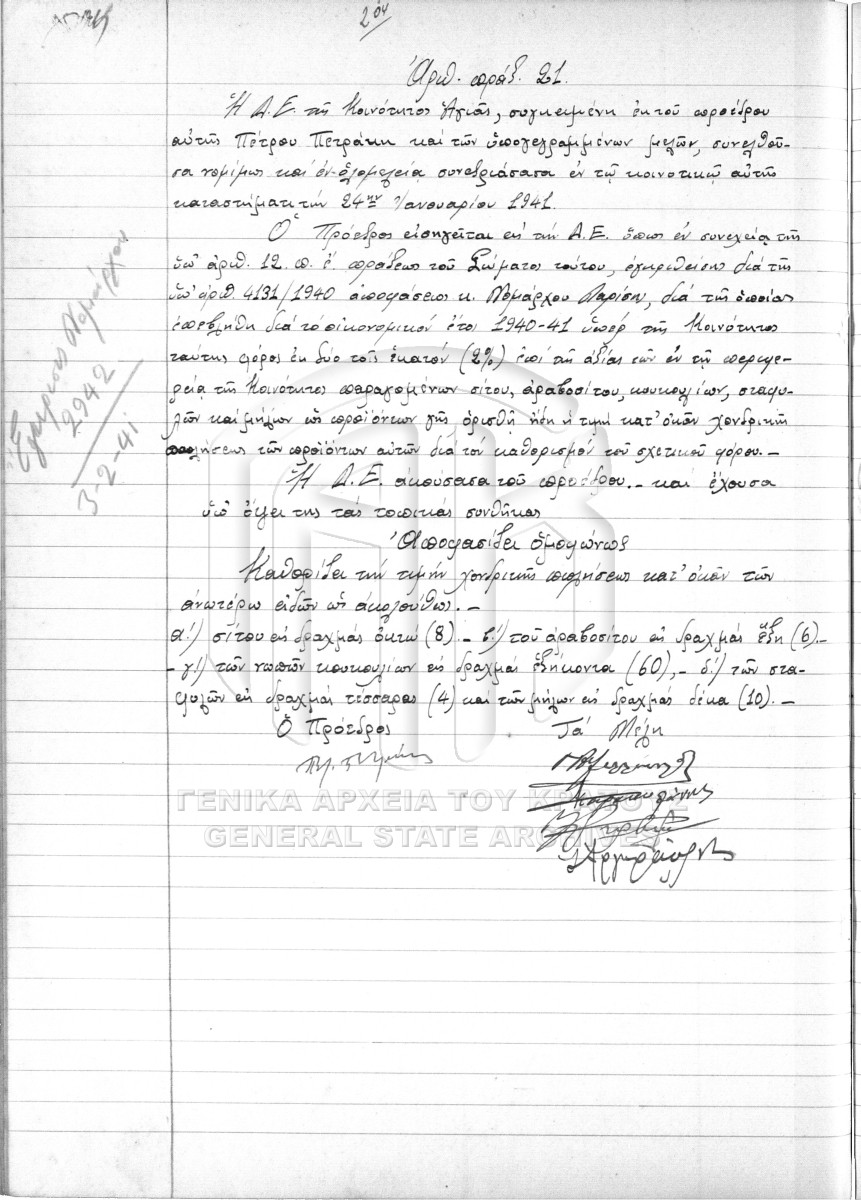 2ον
Ἀριθ. πράξ. 21.
Ἡ Δ.Ε. τῆς Κοινότητος Ἁγιᾶς, συγκειμένη ἐκ τοῦ προέδρου
αὐτῆς Πέτρου Πετράκη καὶ τῶν ὑπογεγραμμένων μελῶν, συνελθοῦ-
σα νομίμως καὶ ἐν ὁλομελείᾳ συνεδριάσασα ἐν τῷ κοινοτικῷ αὐτῆς
καταστήματι τὴν 24ην Ἰανουαρίου 1941.
Ὁ Πρόεδρος εἰσηγεῖται εἰς τὴν Δ.Ε. ὅπως ἐν συνεχείᾳ τῆς
ὑπ' ἀριθ. 12. π. ἔ. πράξεως τοῦ Σώματος τούτου, ἐγκριθείσης διὰ τῆς
ὑπ' ἀριθ. 4131/1940 ἀποφάσεως κ. Νομάρχου Λαρίσης, διὰ τῆς ὁποίας
ἐπεβλήθη διὰ τὸ οἰκονομικὸν ἔτος 1940-41 ὑπὲρ τῆς Κοινότητος
ταύτης φόρος ἐκ δύο τοῖς ἑκατὸν (2%) ἐπὶ τῆς ἀξίας τῶν ἐν τῇ περιφε-
ρείᾳ τῆς Κοινότητος παραγομένων σίτου, ἀραβοσίτου, κουκουλίων, σταφυ-
λῶν καὶ μήλων ὡς προϊόντων γῆς, ὁρισθῇ ἤδη ἡ τιμὴ κατ' ὀκᾶν χονδρικῆς
πωλήσεως τῶν προϊόντων αὐτῶν διὰ τὸν καθορισμὸν τοῦ σχετικοῦ φόρου.-
Ἡ Δ.Ε. ἀκούσασα τοῦ προέδρου.- καὶ ἔχουσα
ὑπ' ὄψει της τὰς τοπικὰς συνθήκας
Ἀποφασίζει ὁμοφώνως
Καθορίζει τὴν τιμὴν χονδρικῆς πωλήσεως κατ' ὀκᾶν τῶν
ἀνωτέρω εἰδῶν ὡς ἀκολούθως.-
α!) σίτου εἰς δραχμὰς ὀκτὼ (8).- β!) τοῦ ἀραβοσίτου εἰς δραχμὰς ἕξη (6).-
- γ!) τῶν νωπῶν κουκουλίων εἰς δραχμὰς ἑξήκοντα (60),- δ!) τῶν στα-
φυλῶν εἰς δραχμὰς τέσσαρας (4) καὶ τῶν μήλων εἰς δραχμὰς δέκα (10).-
Ὁ Πρόεδρος Τὰ Μέλη
Ἐγκρίσεις Νομάρχου
2942
3-2-41.
ΓΕΝΙΚΑ ΑΡΧΕΙΑ ΤΟΥ ΚΡΑΤΟΥΣ
GENERAL STATE ARCHIVES